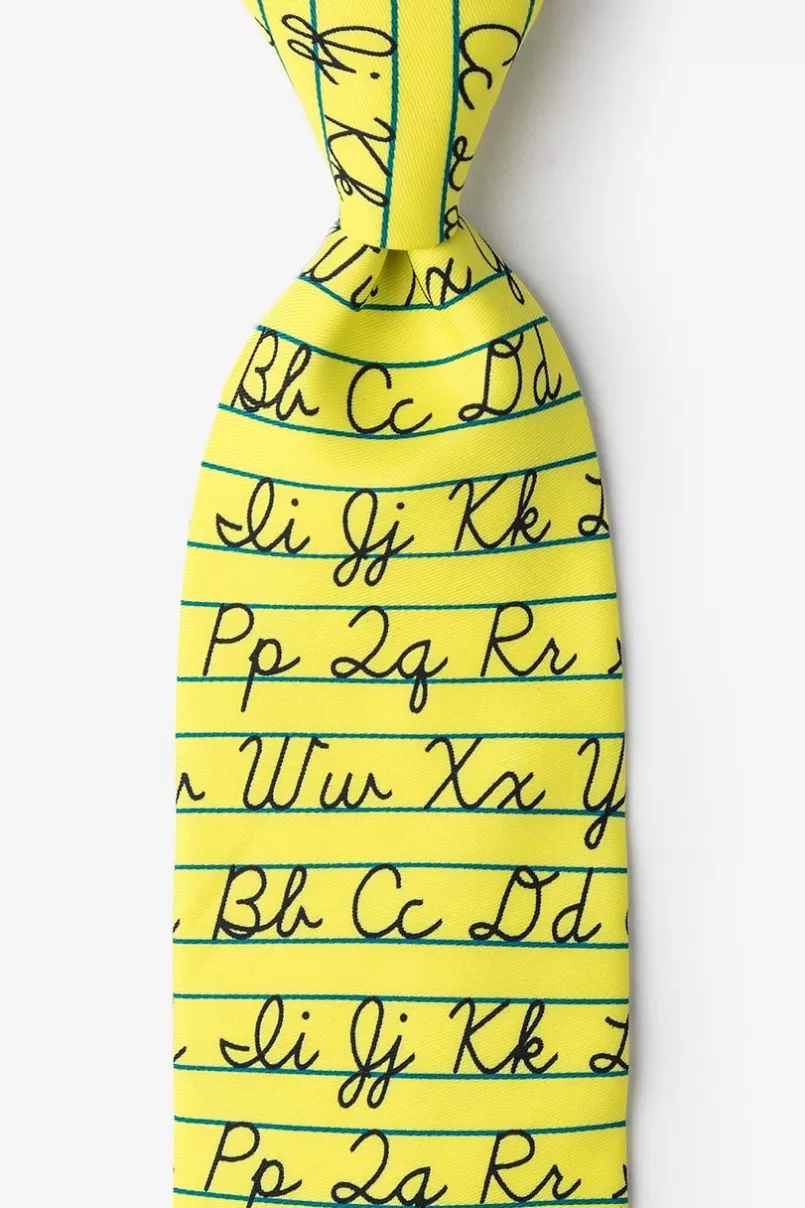 Jj Kk
Cc
W Xx Y
Bb Cc Dd
Ii Jj Kk L
Pp Qq Rr
Ww Xx Y
Bb Cc Dd
Ii Jj Kk L
Pp Qq Rr